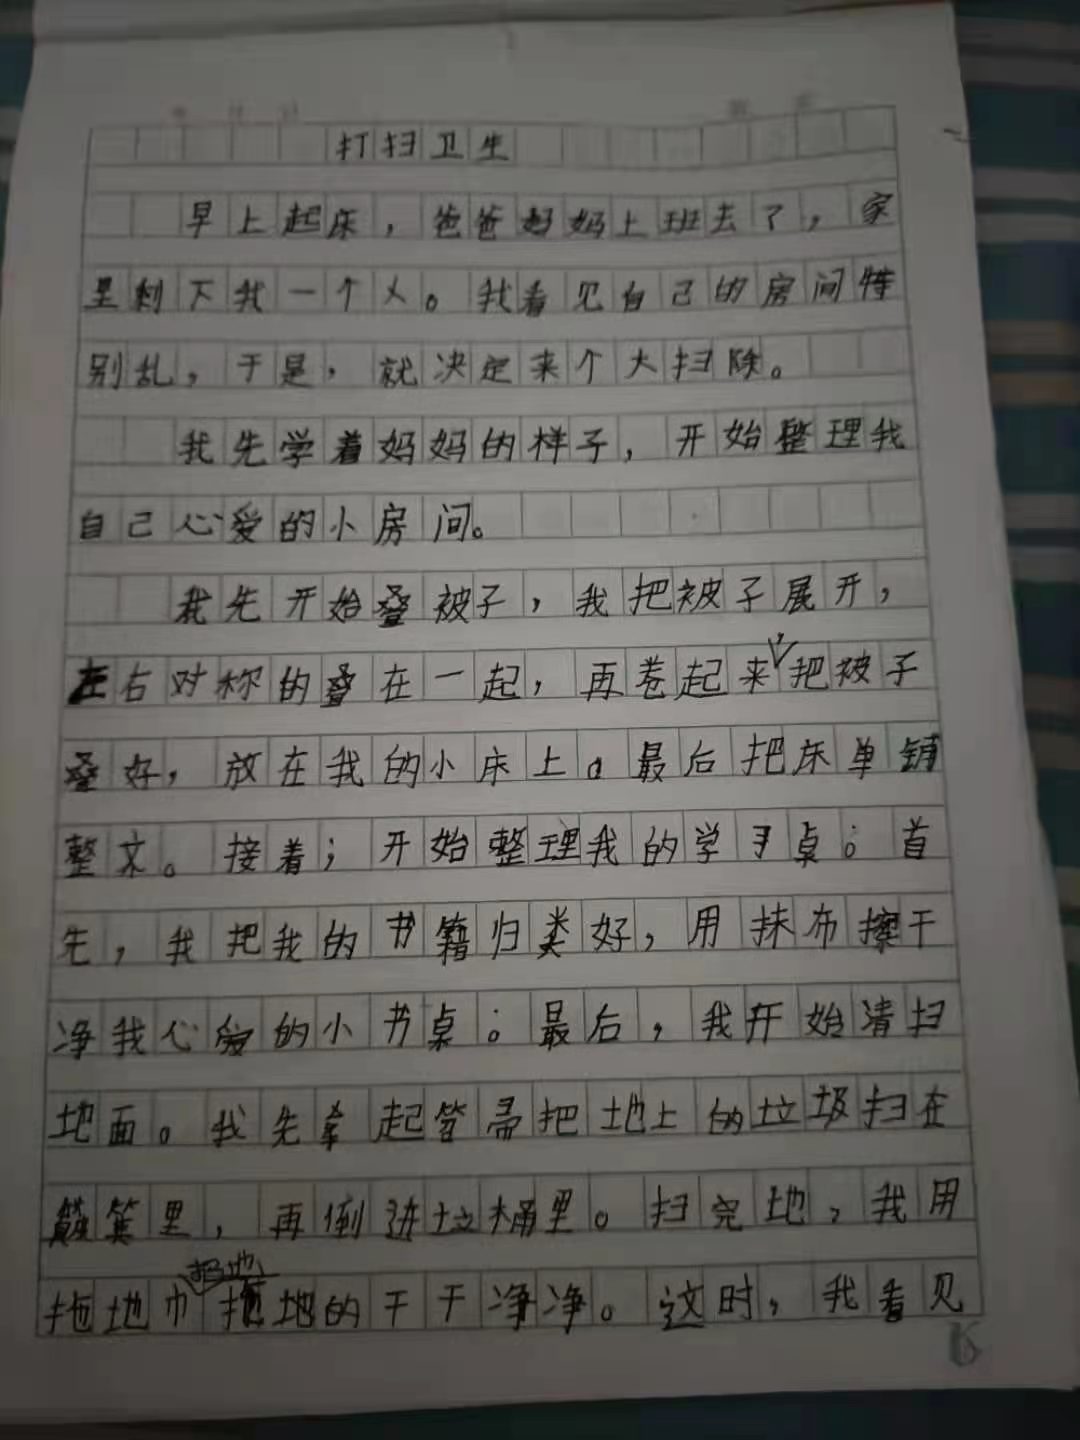 打扫卫生
早上起床，爸爸妈妈上班去了，家
里剩下我一个人。我看见自己的房间特
别乱，于是，就决定来个大扫除。
我先学着妈妈的样子，开始整理我
自己心爱的小房间。
我先开始叠被子，我把被子展开，
左右对称的叠在一起，再卷起来，把被子
叠好，放在我的小床上。最后把床单铺
整文。接着；开始整理我的学习桌。首
先，我把我的书籍归类好，用抹布擦干
净我心爱的小书桌。最后，我开始清扫
地面。我先拿起笤帚把地上的垃圾扫在
簸箕里，再倒进垃桶里。扫完地，我用
拖地巾把地拖地的干干净净。这时，我看见